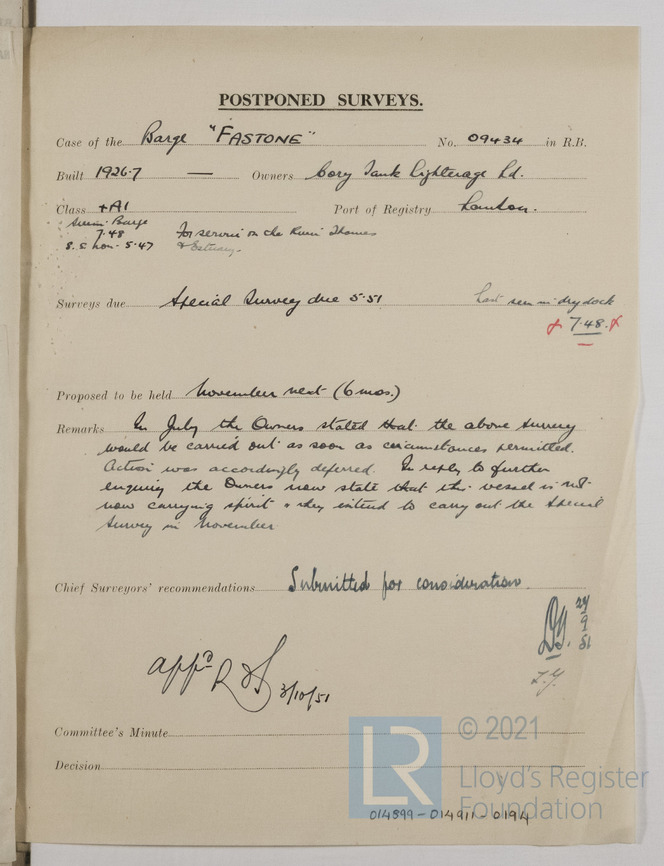 POSTPONED SURVEYS.
Case of the Barge "FASTONE" No. 09434 in R.B.
Built 1926·7 — Owners Cory Tank Lighterage Ld.
Class +A1 Port of Registry London.
Barge
7.48 For service on the River Thames
S.S. Lon. 5.47 & Estuary.
Surveys due Special Survey due 5.51 Last seen in dry dock
7.48.
Proposed to be held November next (6 mos.)
Remarks In July the Owners stated that the above survey
would be carried out as soon as circumstances permitted.
Action was accordingly deferred. In reply to further
enquiry the Owners now state that this vessel is not
now carrying spirit & they intend to carry out the Special
Survey in November
Chief Surveyors' recommendations Submitted for consideration.
24
9
51
appd 3/10/51
Committee's Minute
Decision
LR
© 2021
Lloyd's Register
Foundation
014899-014911-0194